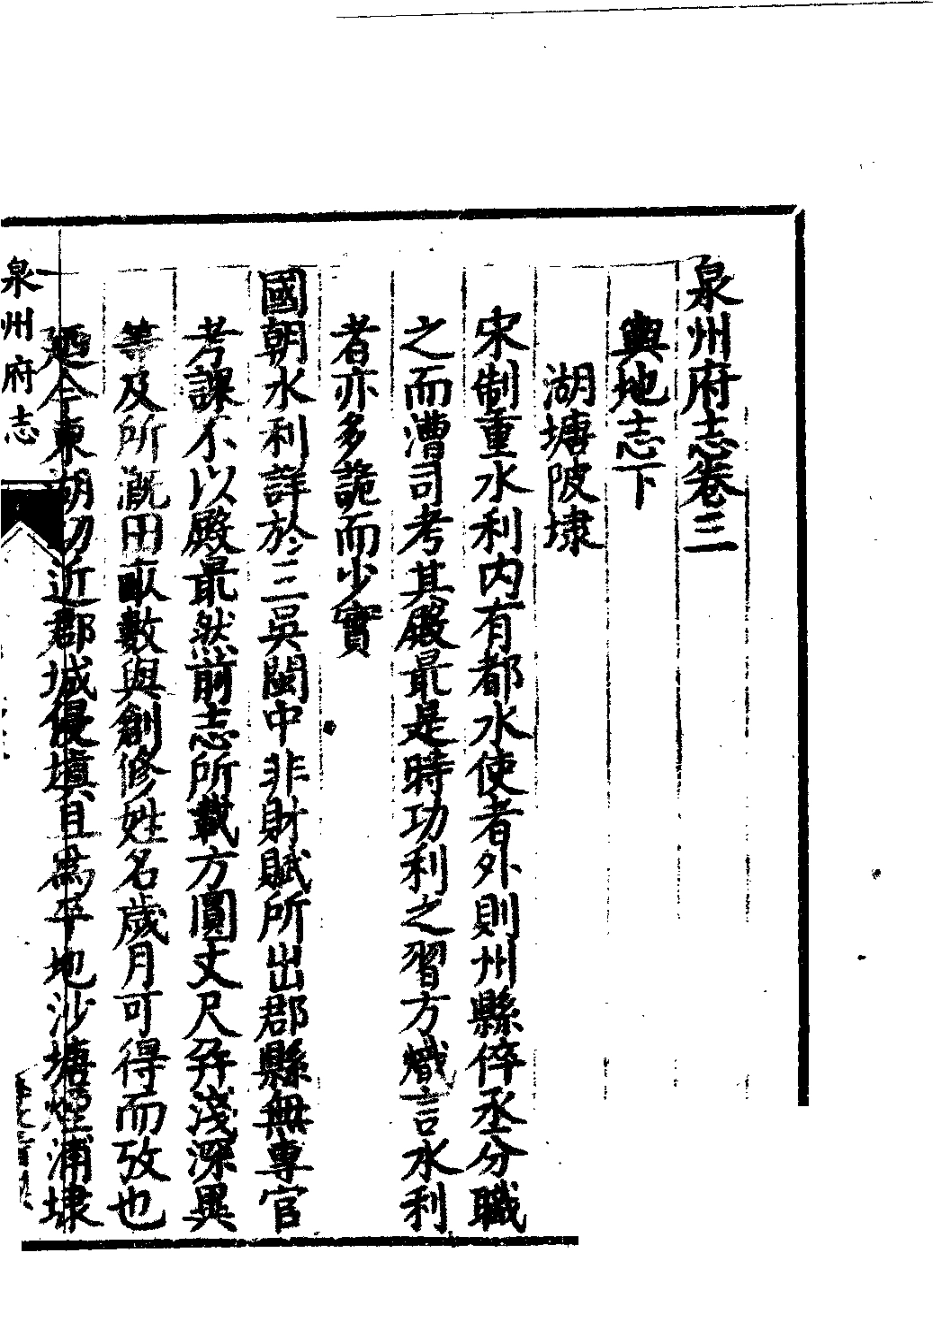 泉州府志卷三
輿地志下
湖塘陂埭
宋制重水利内有都水使者外則州縣倅丞分職
之而漕司考其殿最是時功利之習方熾言水利
者亦多詭而少實
國朝水利詳於三吳閩中非財賦所出郡縣無專官
考課不以殿最然前志所載方圓丈尺并淺深異
等及所溉田畝數與創修姓名歲月可得而攷也
廼今東湖切近郡城侵塡且爲平地沙塘煙浦埭
泉州府志